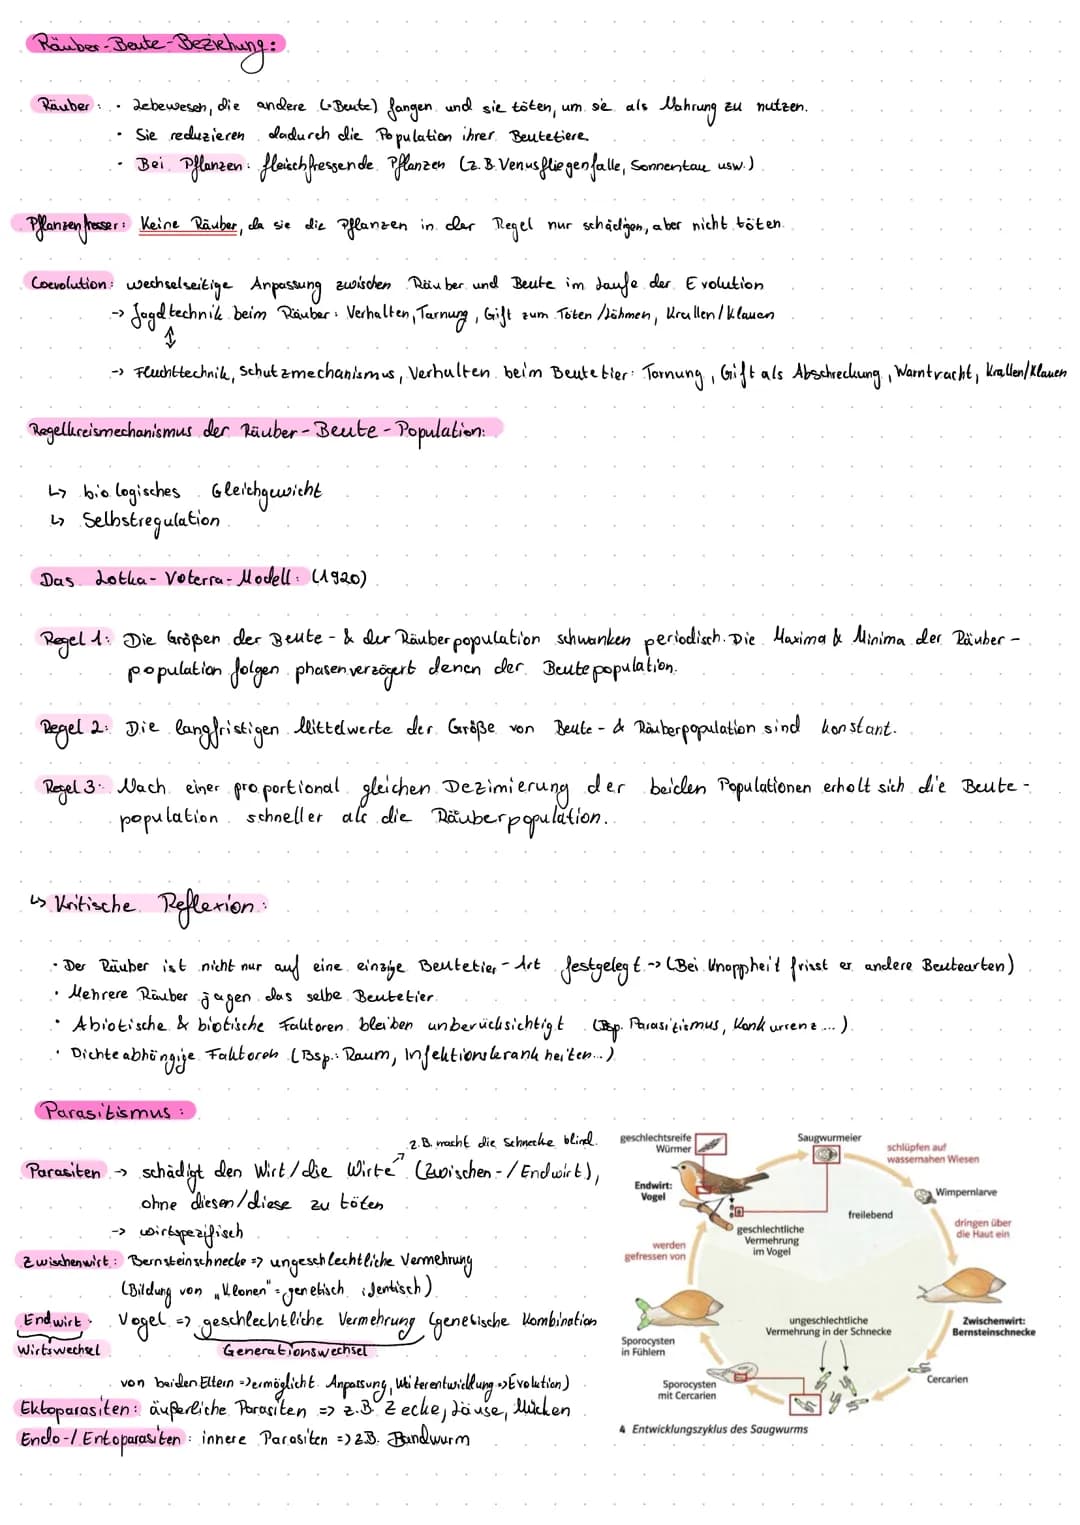 Räuber-Beute-Beziehung:
Räuber: · Lebewesen, die andere (→Beute) fangen und sie töten, um sie als Nahrung zu nutzen.
· Sie reduzieren dadurch die Population ihrer Beutetiere
· Bei Pflanzen: fleischfressende Pflanzen (z.B. Venusfliegenfalle, Sonnentau usw.)
Pflanzenfresser: Keine Räuber, da sie die Pflanzen in der Regel nur schädigen, aber nicht töten.
Coevolution: wechselseitige Anpassung zwischen Räuber und Beute im Laufe der Evolution
-> Jagdtechnik beim Räuber: Verhalten, Tarnung, Gift zum Töten/Lähmen, Krallen/Klauen
↕
-> Fluchttechnik, Schutzmechanismus, Verhalten beim Beutetier: Tarnung, Gift als Abschreckung, Warntracht, Krallen/Klauen
Regelkreismechanismus der Räuber-Beute-Population:
↳ biologisches Gleichgewicht
↳ Selbstregulation
Das Lotka-Voterra-Modell: (1920)
Regel 1: Die Größen der Beute- & der Räuberpopulation schwanken periodisch. Die Maxima & Minima der Räuber-
population folgen phasenverzögert denen der Beutepopulation.
Regel 2: Die langfristigen Mittelwerte der Größe von Beute- & Räuberpopulation sind konstant.
Regel 3: Nach einer proportional gleichen Dezimierung der beiden Populationen erholt sich die Beute-
population schneller als die Räuberpopulation.
↳ Kritische Reflexion:
· Der Räuber ist nicht nur auf eine einzige Beutetier-Art festgelegt -> (Bei Knappheit frisst er andere Beutearten)
· Mehrere Räuber jagen das selbe Beutetier
· Abiotische & biotische Faktoren bleiben unberücksichtigt (Bsp. Parasitismus, Konkurrenz...)
· Dichteabhängige Faktoren (Bsp.: Raum, Infektionskrankheiten...)
Parasitismus:
z.B. macht die Schnecke blind
Parasiten -> schädigt den Wirt/die Wirte (Zwischen-/Endwirt),
ohne diesen/diese zu töten
-> wirtspezifisch
Zwischenwirt: Bernsteinschnecke => ungeschlechtliche Vermehrung
(Bildung von "Klonen" = genetisch identisch)
Endwirt: Vogel => geschlechtliche Vermehrung (genetische Kombination
Wirtswechsel
Generationswechsel
von beiden Eltern => ermöglicht Anpassung, Weiterentwicklung => Evolution)
Ektoparasiten: äußerliche Parasiten => z.B. Zecke, Läuse, Mücken
Endo-/Entoparasiten: innere Parasiten => z.B. Bandwurm
geschlechtsreife
Würmer
Saugwurmeier
schlüpfen auf
wassernahen Wiesen
Endwirt:
Vogel
Wimpernlarve
freilebend
geschlechtliche
Vermehrung
im Vogel
dringen über
die Haut ein
werden
gefressen von
ungeschlechtliche
Vermehrung in der Schnecke
Zwischenwirt:
Bernsteinschnecke
Sporocysten
in Fühlern
Cercarien
Sporocysten
mit Cercarien
4 Entwicklungszyklus des Saugwurms